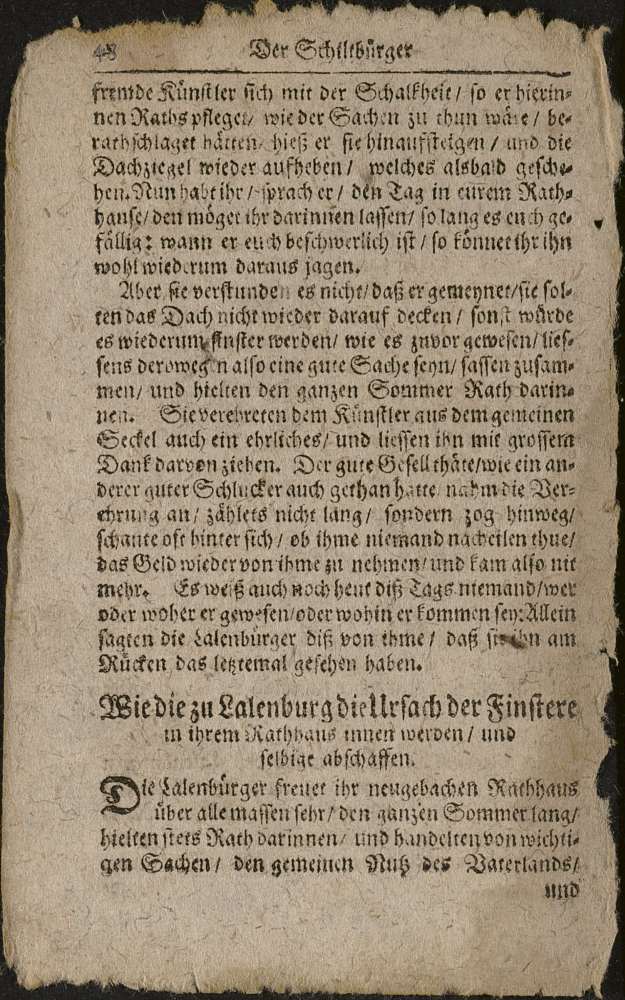 48 Der Schiltbürger
fremde Künstler sich mit der Schalkheit / so er hierin-
nen Raths pfleget / wie der Sachen zu thun wäre / be-
rathschlaget hätten / hieß er sie hinauf steigen / und die
Dachziegel wieder aufheben / welches alsbald gesche-
hen. Nun habt ihr / sprach er / den Tag in eurem Rath-
hause / den möget ihr darinnen lassen / so lang es euch ge-
fällig: wann er euch beschwerlich ist / so könnet ihr ihn
wohl wiederum daraus jagen.
Aber sie verstunden es nicht / daß er gemeynet / sie sol-
ten das Dach nicht wieder darauf decken / sonst würde
es wiederum finster werden / wie es zuvor gewesen / lies-
sens derowegen also eine gute Sache seyn / sassen zusam-
men / und hielten den ganzen Sommer Rath darin-
nen. Sie verehreten dem Künstler aus dem gemeinen
Seckel auch ein ehrliches / und liessen ihn mit grossem
Dank darvon ziehen. Der gute Gesell thäte / wie ein an-
derer guter Schlucker auch gethan hatte / nahm die Ver-
ehrung an / zählets nicht lang / sondern zog hinweg /
schaute oft hinter sich / ob ihme niemand nacheilen thue /
das Geld wieder von ihme zu nehmen / und kam also nit
mehr. Es weiß auch noch heut diß Tags niemand / wer
oder woher er gewesen / oder wohin er kommen sey: Allein
sagten die Lalenbürger diß von ihme / daß sie ihn am
Rücken das letztemal gesehen haben.
Wie die zu Lalenburg die Ursach der Finstere
in ihrem Rathhaus innen werden / und
selbige abschaffen.
Die Lalenbürger freuet ihr neugebachen Rathhaus
über alle massen sehr / den ganzen Sommer lang /
hielten stets Rath darinnen / und handelten von wichti-
gen Sachen / den gemeinen Nutz des Vaterlands /
und